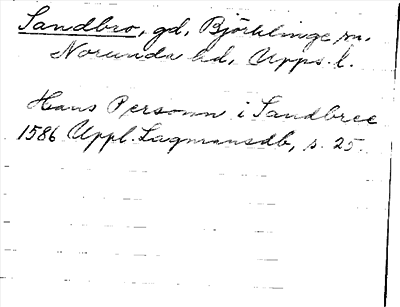 Sandbro, gd, Björklinge sn.
Norunda hd, Upps. l.
Hans Persson i Sandbree
1586 Uppl. Lagmansdb, s. 25.